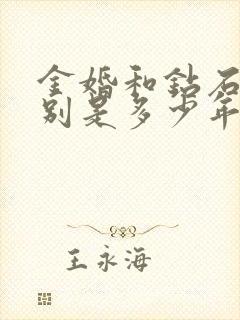 金婚和钻石
别是多少年
王永海